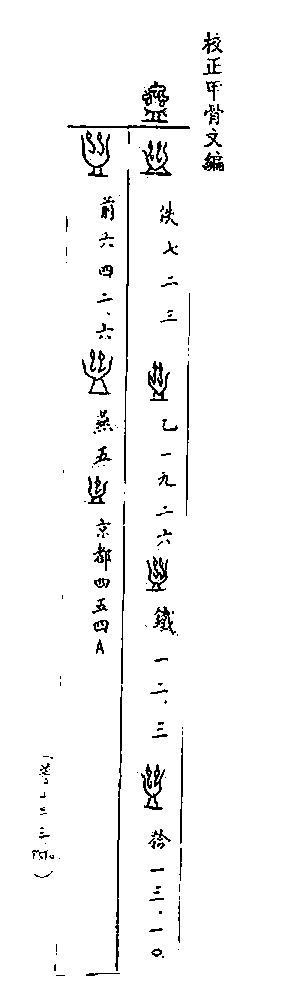 校正甲骨文編
佚七二三 乙一九二六 鐵一二.三 拾一三.一〇
前六四二.六 燕五 京都四五四A